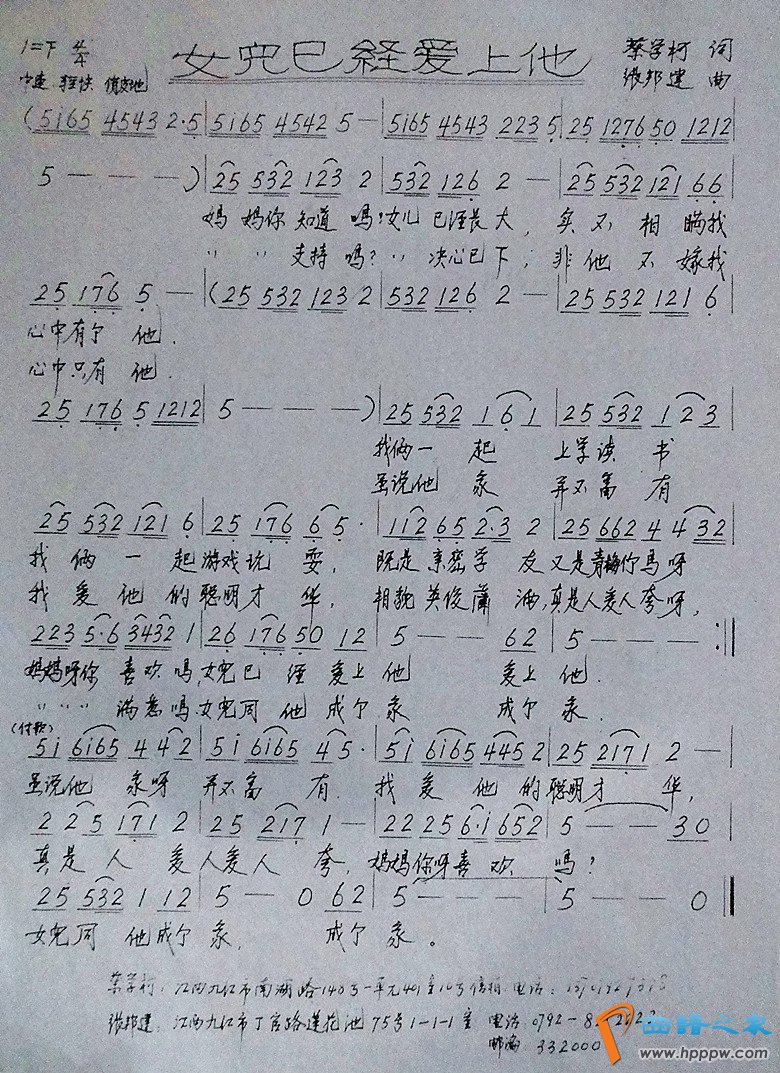 1=F 4/4 女兒已経爱上他 蔡学柯 词
中速 轻快 俏皮地 张邦建 曲
(5i65 4543 2·5 | 5i65 4542 5 — | 5i65 4543 223 5 | 25 1276 50 1212
5 — — —) | 25 532 123 2 | 532 126 2 — | 25 532 121 66
妈妈你知道吗?女儿已经长大,实不相瞒我
〃 〃 支持吗?〃 决心已下,非他不嫁我
25 176 5 — | (25 532 123 2 | 532 126 2 — | 25 532 121 6
心中有了他.
心中只有他.
25 176 5 1212 | 5 — — —) | 25 532 1 6 1 | 25 532 1 2 3
我俩一起 上学读书
虽说他家 并不富有
25 532 121 6 | 25 176 6 5· | 112 65 2·3 2 | 25 662 4 4 32
我俩一起游戏玩耍,既是亲密学友又是青梅竹马呀
我爱他的聪明才华,相貌英俊潇洒,真是人爱人夸呀,
223 5·6 3432 1 | 26 176 50 12 | 5 — — 62 | 5 — — — :‖
妈妈呀你喜欢吗,女兒已经爱上他 爱上他.
〃 〃 〃 满意吗,女兒同他成了家 成了家.
(付歌)
5i 6i65 4 42 | 5i 6i65 4 5· | 5i 6i65 4452 | 25 2171 2 —
虽说他家呀并不富有.我爱他的聪明才华,
2 25 171 2 | 25 217 1 — | 22 25 6·i 652 | 5 — — 30
真是人爱人爱人夸,妈妈你呀喜欢吗?
25 532 1 12 | 5 — 0 62 | 5 — — — | 5 — — 0 ‖
女兒同他成了家,成了家。
蔡学柯:江西九江市南湖路140号一单元401室 电话:
张邦建:江西九江市丁官路莲花池75号1-1-1室 电话:0792-8
邮编:332000
曲谱之家
www.hpppw.com